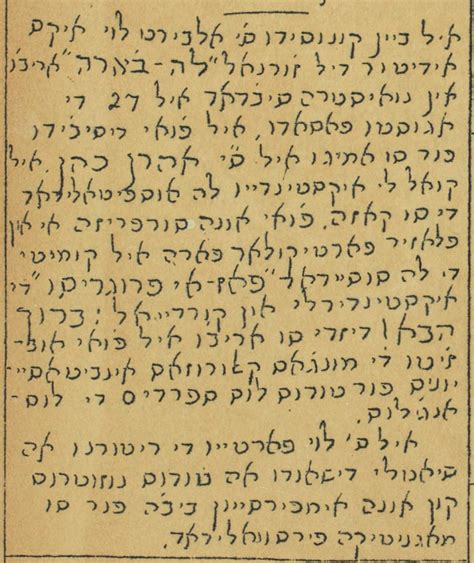 איל ביין קונוסידו ס׳ אלבירטו לוי איקס
אידיטור דיל ז׳ורנאל "לה-בוארה" אריבו
אין נואיסטרה סיבדאד איל 27 די
אגוסטו פאסאדו, איל פ׳ואי ריסיבידו
פור סו אמיגו איל ס׳ אהרן כהן. איל
קואל לי איקסטינדייו לה אוספיטאלידאד
די סו קאזה. פ׳ואי אונה סורפריזה אי אין
פלאזיר פארטיקולאר פארה איל קומיטי
די לה סוסיידאד "פאז-אי פרוגריסו" די
איקסטינדירלי אין קורדייאל: ברוך
הבא! דיזדי סו אריבו איל פ׳ואי אוב-
ז׳יטו די מונג׳אס קאורוזאס אינביטאסיי-
יונים פור טודוס לוס ספרדיס די לוס-
אנג׳ילוס.
איל ס׳ לוי פארטייו די ריטורנו אה
סיאטלי דישאנדו אה טודוס נוזוטרוס
קון אונה אימפריסיון ביבה פור סו
מאגניטיקה פירסונאלידאד.